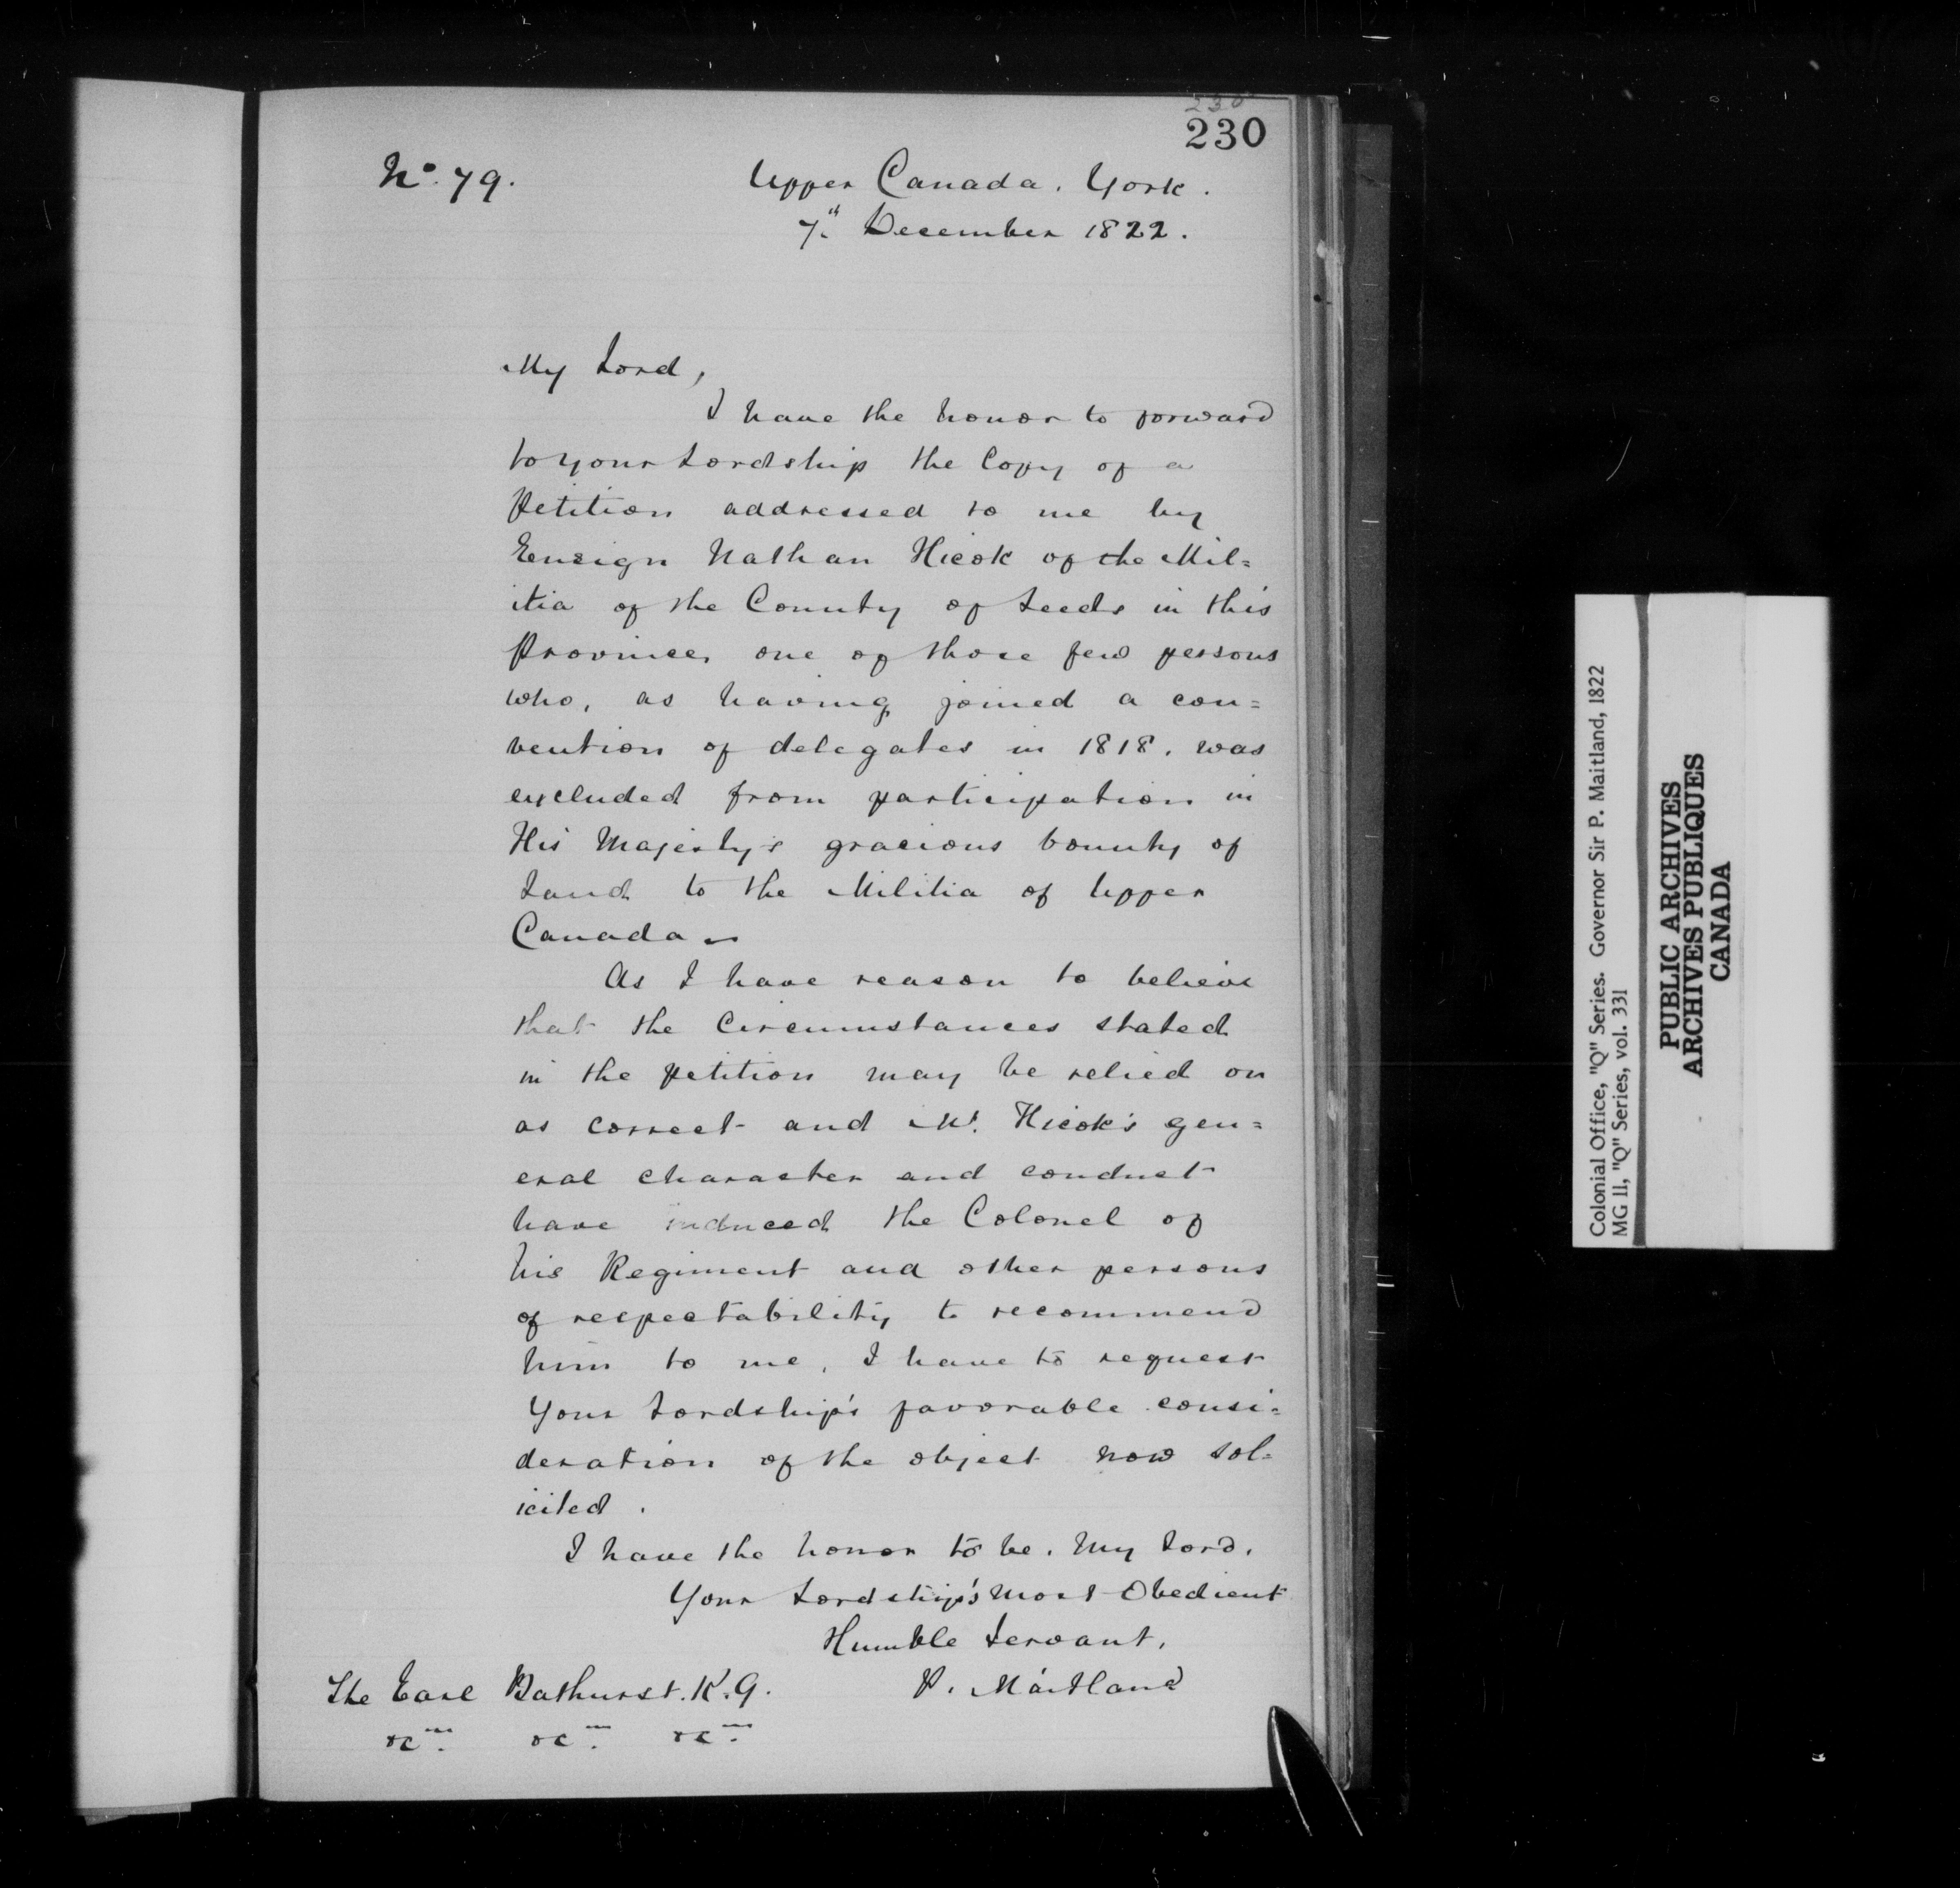 230
230
No. 79.
Upper Canada. York.
7th December 1822.
My Lord,
I have the honor to forward
to your Lordship the Copy of a
Petition addressed to me by
Ensign Nathan Hicok of the Mil=
itia of the County of Leeds in this
Province, one of those few persons
who, as having joined a con=
vention of delegates in 1818, was
excluded from participation in
His Majesty's gracious bounty of
Land to the Militia of Upper
Canada.
As I have reason to believe
that the Circumstances stated
in the petition may be relied on
as correct and Mr. Hicok's gen=
eral character and conduct
have induced the Colonel of
his Regiment and other persons
of respectability to recommend
him to me, I have to request
Your Lordship's favorable consi=
deration of the object now sol=
icited.
I have the honor to be, My Lord,
Your Lordship's Most Obedient
Humble Servant,
P. Maitland
The Earl Bathurst. K.G.
&c. &c. &c.
Colonial Office, "Q" Series. Governor Sir P. Maitland, 1822
MG 11, "Q" Series, vol. 331
PUBLIC ARCHIVES
ARCHIVES PUBLIQUES
CANADA